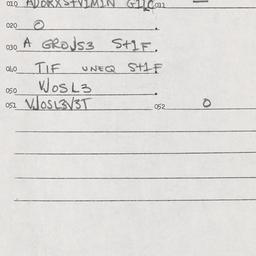 010 ADDRXS+V1M1N G11C 011 —
020 0 .
030 A GROJS3 S+1F.
040 TIF UNEQ S+1F
050 WOSL3 .
051 VJOSL3V3T 052 0